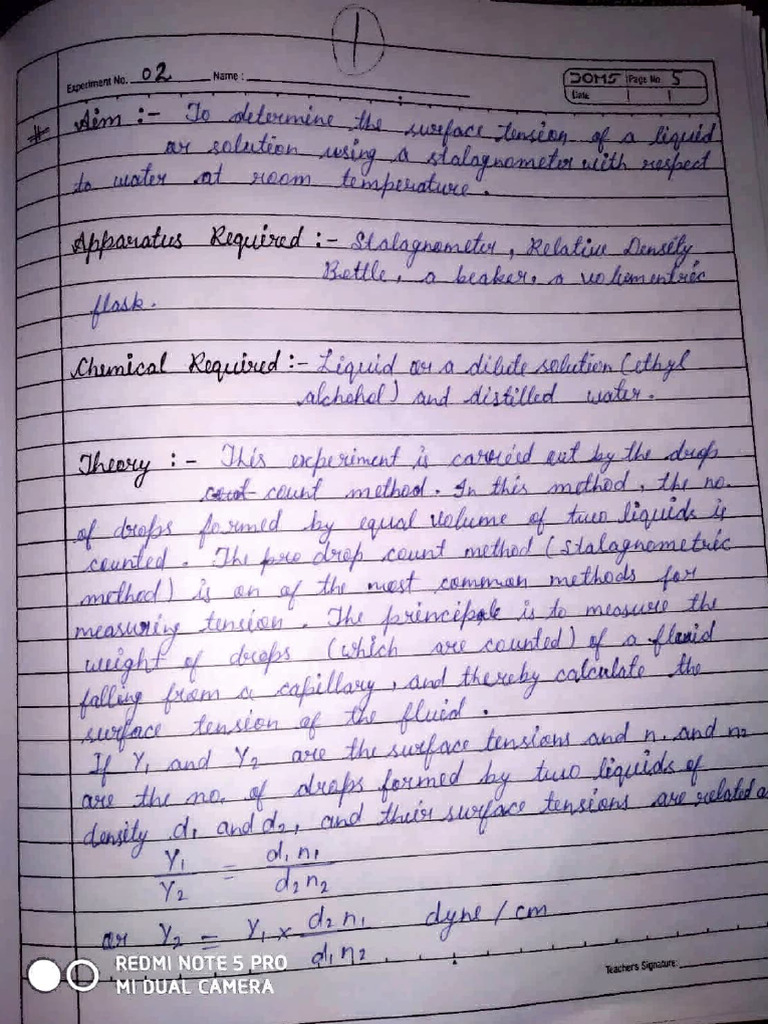 1
Experiment No. 02 Name :
DOMS Page No 5
Date
Aim :- To determine the surface tension of a liquid
or solution using a stalagnometer with respect
to water at room temperature.
Apparatus Required :- Stalagnometer, Relative Density
Bottle, a beaker, a volumentric
flask.
Chemical Required :- Liquid or a dilute solution (ethyl
alchohol) and distilled water.
Theory :- This experiment is carried out by the drop
count method. In this method, the no.
of drops formed by equal volume of two liquids is
counted. The drop count method (stalagnometric
method) is on of the most common methods for
measuring tension. The principle is to measure the
weight of drops (which are counted) of a fluid
falling from a capillary, and thereby calculate the
surface tension of the fluid.
If γ₁ and γ₂ are the surface tensions and n₁ and n₂
are the no. of drops formed by two liquids of
density d₁ and d₂, and their surface tensions are related a
γ₁/γ₂ = d₁n₁/d₂n₂
or γ₂ = γ₁ × d₂n₁/d₁n₂ dyne / cm
Teacher's Signature:
REDMI NOTE 5 PRO
MI DUAL CAMERA